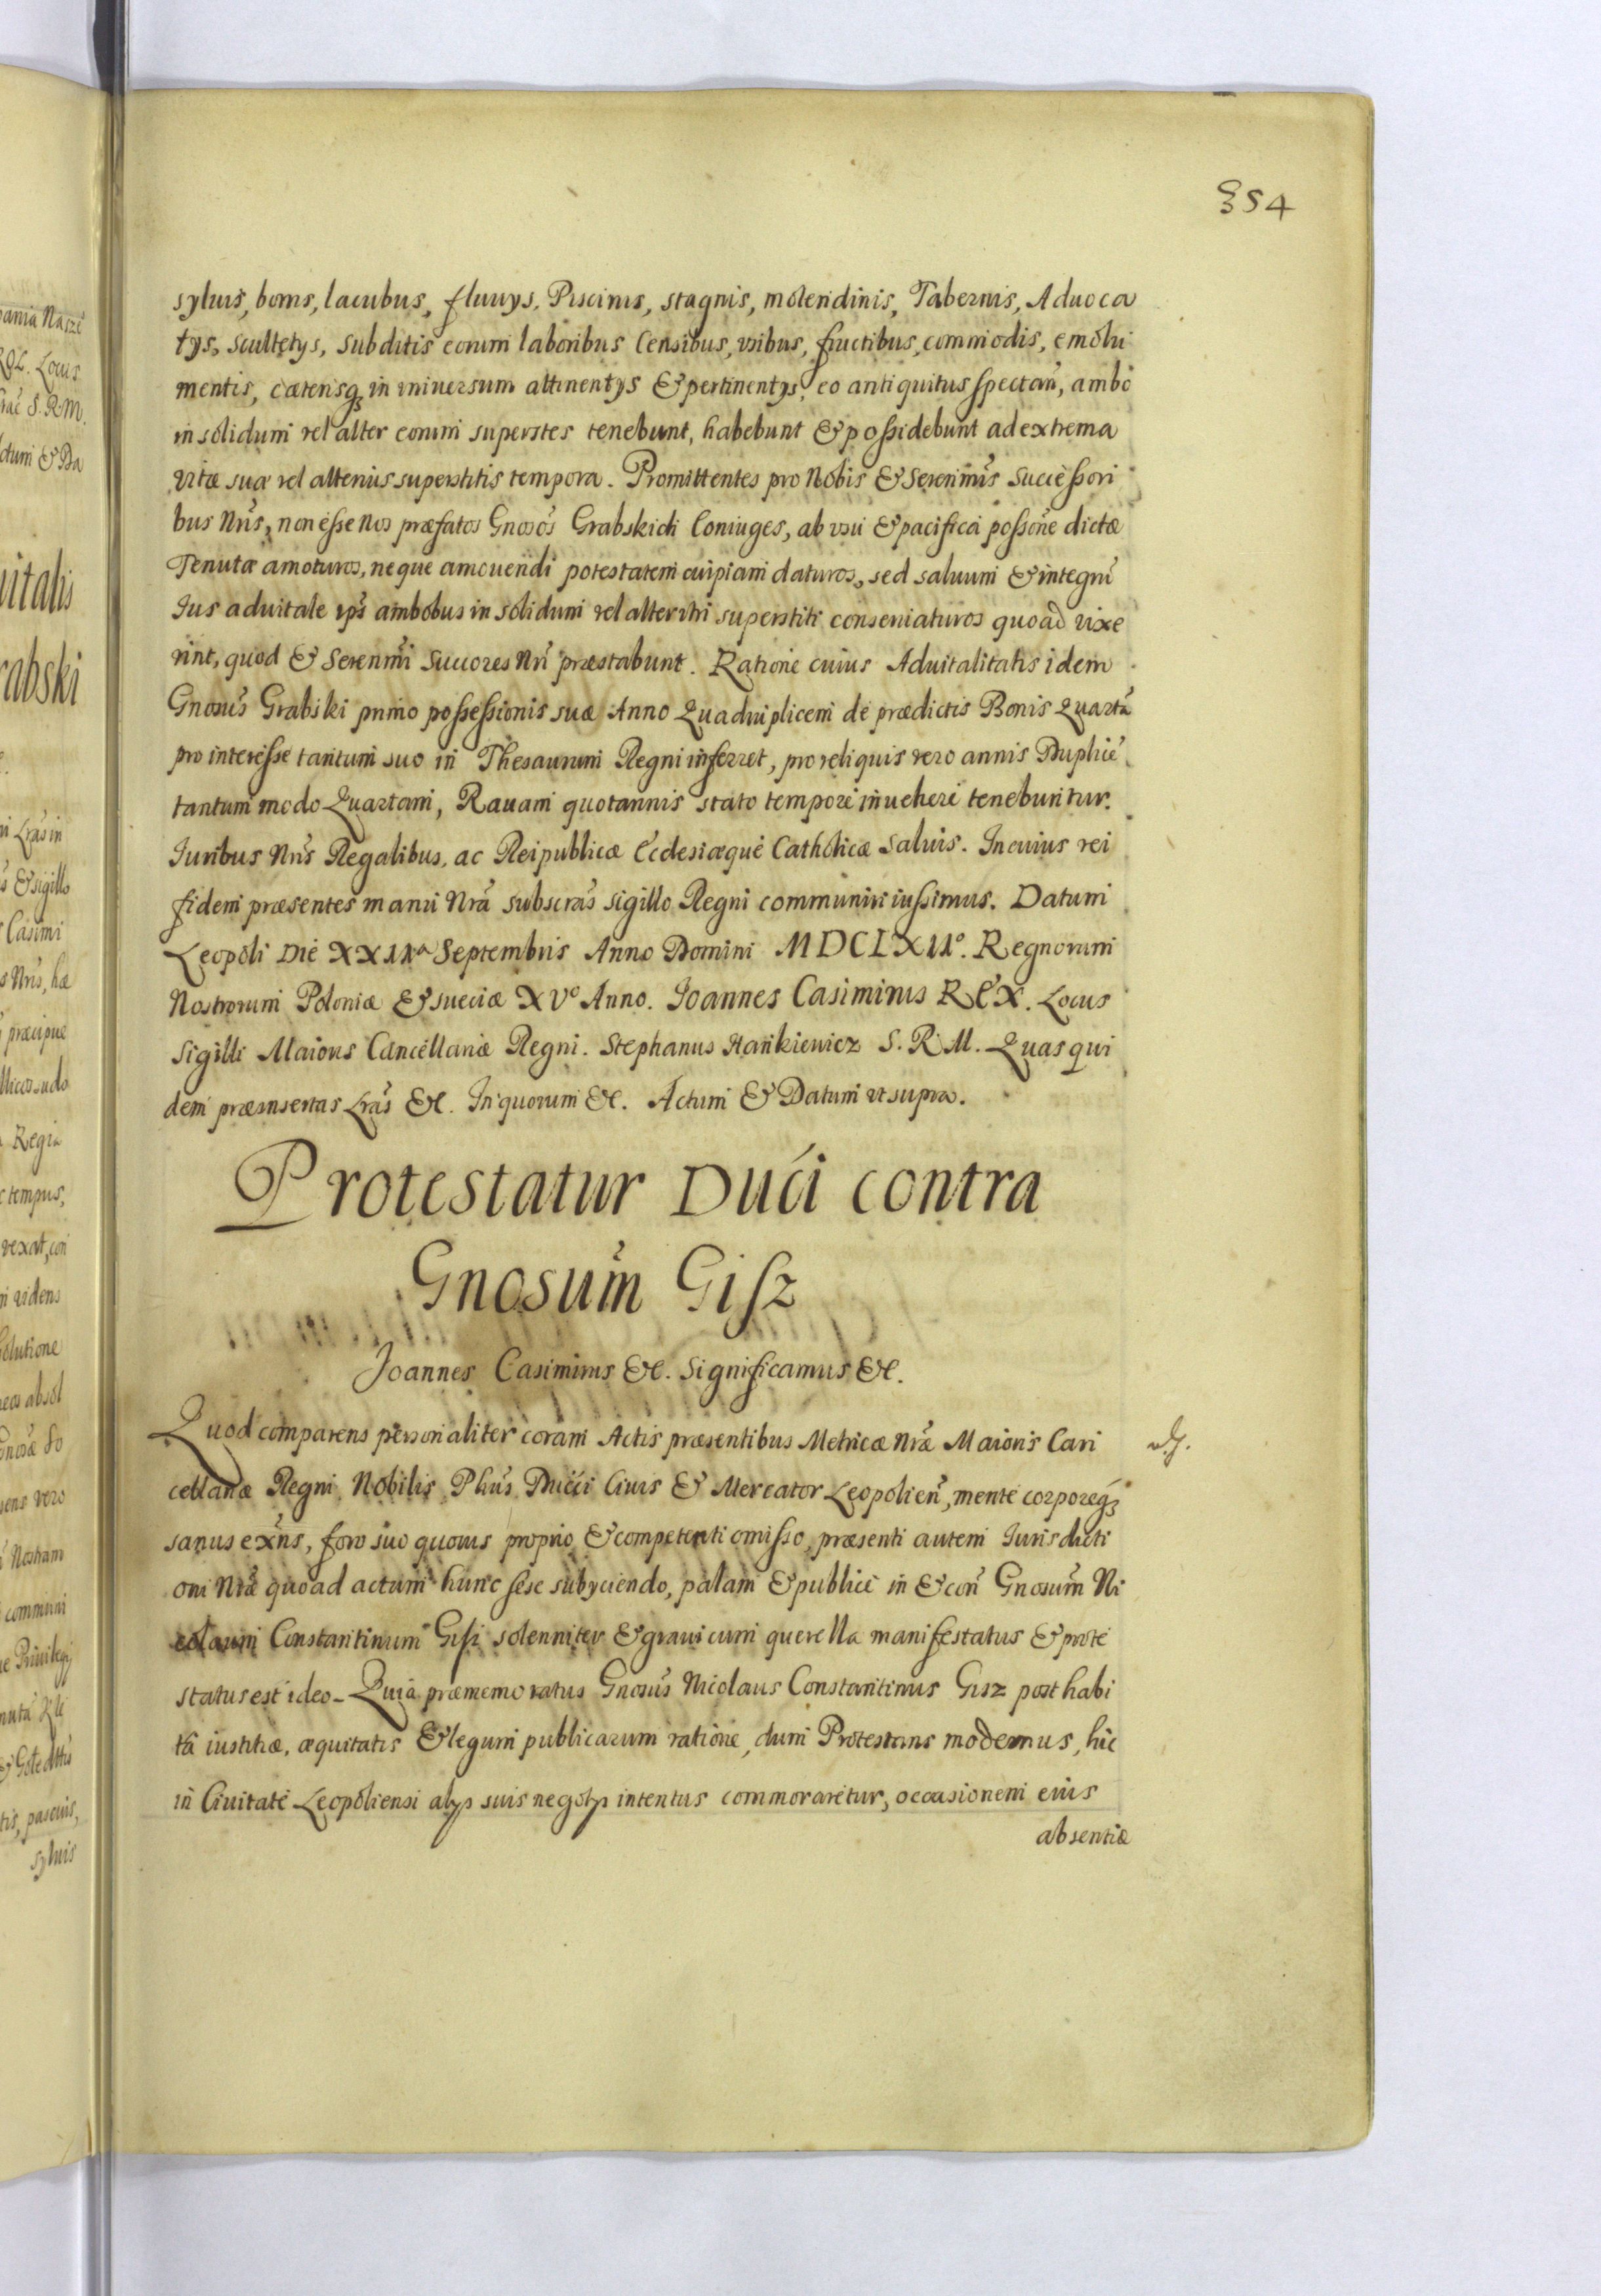 354
syluis, boris, lacubus, fluuys, Piscinis, stagnis, molendinis, Tabernis, Aduoca
tys, scultetys, subditis eorum laboribus Censibus, vsibus, fructibus, commodis, emolu
mentis, cæterisq; in vniuersum attinentys & pertinentys, eo antiquitus spectañ, ambo
in solidum vel alter eorum superstes tenebunt, habebunt & possidebunt ad extrema
vitæ suæ vel alterius superstitis tempora. Promittentes pro Nobis & Serenmis Successori
bus Nris, non esse Nos præfatos Gnosos Grabskich Coniuges, ab vsu & pacifica possone dictæ
Tenutæ amoturos, neque amouendi potestatem cuipiam daturos, sed saluum & integrū
Ius aduitale ipsis ambobus in solidum vel alterutri superstiti conseruaturos quoad vixe
rint, quod & Serenmi Succores Nri præstabunt. Ratione cuius Aduitalitatis idem
Gnosus Grabski primo possessionis suæ Anno Quadruplicem de prædictis Bonis Quartā
pro interesse tantum suo in Thesaurum Regni inferret, pro reliquis vero annis Duplicē
tantum modo Quartam, Rauam quotannis stato tempore inuehere tenebuntur.
Iuribus Nris Regalibus, ac Reipublicæ Ecclesiæque Catholicæ saluis. In cuius rei
fidem præsentes manu Nrā subscras sigillo Regni communiri iussimus. Datum
Leopoli Die XXIIa Septembris Anno Domini MDCLXIIo. Regnorum
Nostrorum Poloniæ & Sueciæ XVo Anno. Joannes Casimirus REX. Locus
Sigilli Maioris Cancellariæ Regni. Stephanus Hankiewicz S. R. M. Quas qui
dem præinsertas Lrās &c. In quorum &c. Actum & Datum vt supra.
Protestatur Duci contra
Gnosum Gisz
Joannes Casimirus &c. Significamus &c.
Quod comparens personaliter coram Actis præsentibus Metricæ Nræ Maioris Can
cellariæ Regni, Nobilis Phūs Ducci Ciuis & Mercator Leopolieñ, mente corporeq;
sanus exñs, foro suo quouis proprio & competenti omisso, præsenti autem Iurisdicti
oni Nræ quoad actum hunc sese subyciendo, palam & publice in & con Gnosum Ni
colaum Constantinum Gisz solenniter & graui cum querella manifestatus & prote
status est ideo - Quia præmemoratus Gnosus Nicolaus Constantinus Gisz posthabi
tā iustitiæ, æquitatis & legum publicarum ratione, dum Protestans modernus, hic
in Ciuitate Leopoliensi alys suis negotys intentus commoraretur, occasionem eius
absentiæ